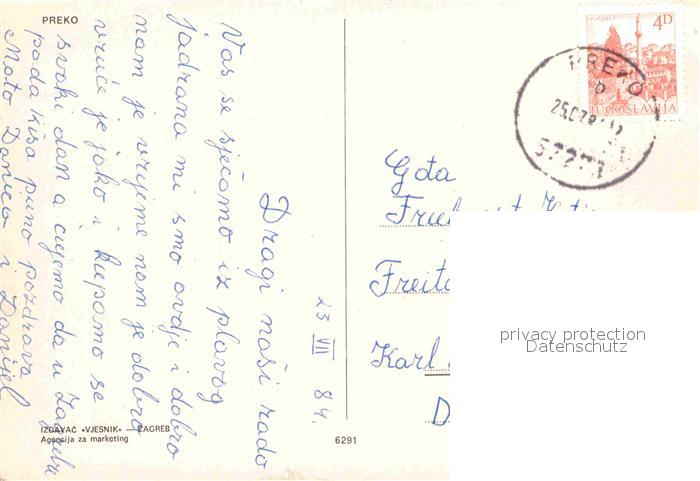 PREKO
23 VII 84.
Dragi naši rado
Vas se sjećamo iz plavog
jadrana mi smo ovdje i dobro
nam je vrijeme nam je dobro
vruće je jako i kupamo se
svaki dan a čujemo da u Zagrebu
pada kiša puno pozdrava
Mato Danica i Danijel
IZDAVAČ «VJESNIK» — ZAGREB
Agencija za marketing
6291
4D
JUGOSLAVIJA
PREKO
b
57273
Gđa
Karl
D
privacy protection
Datenschutz